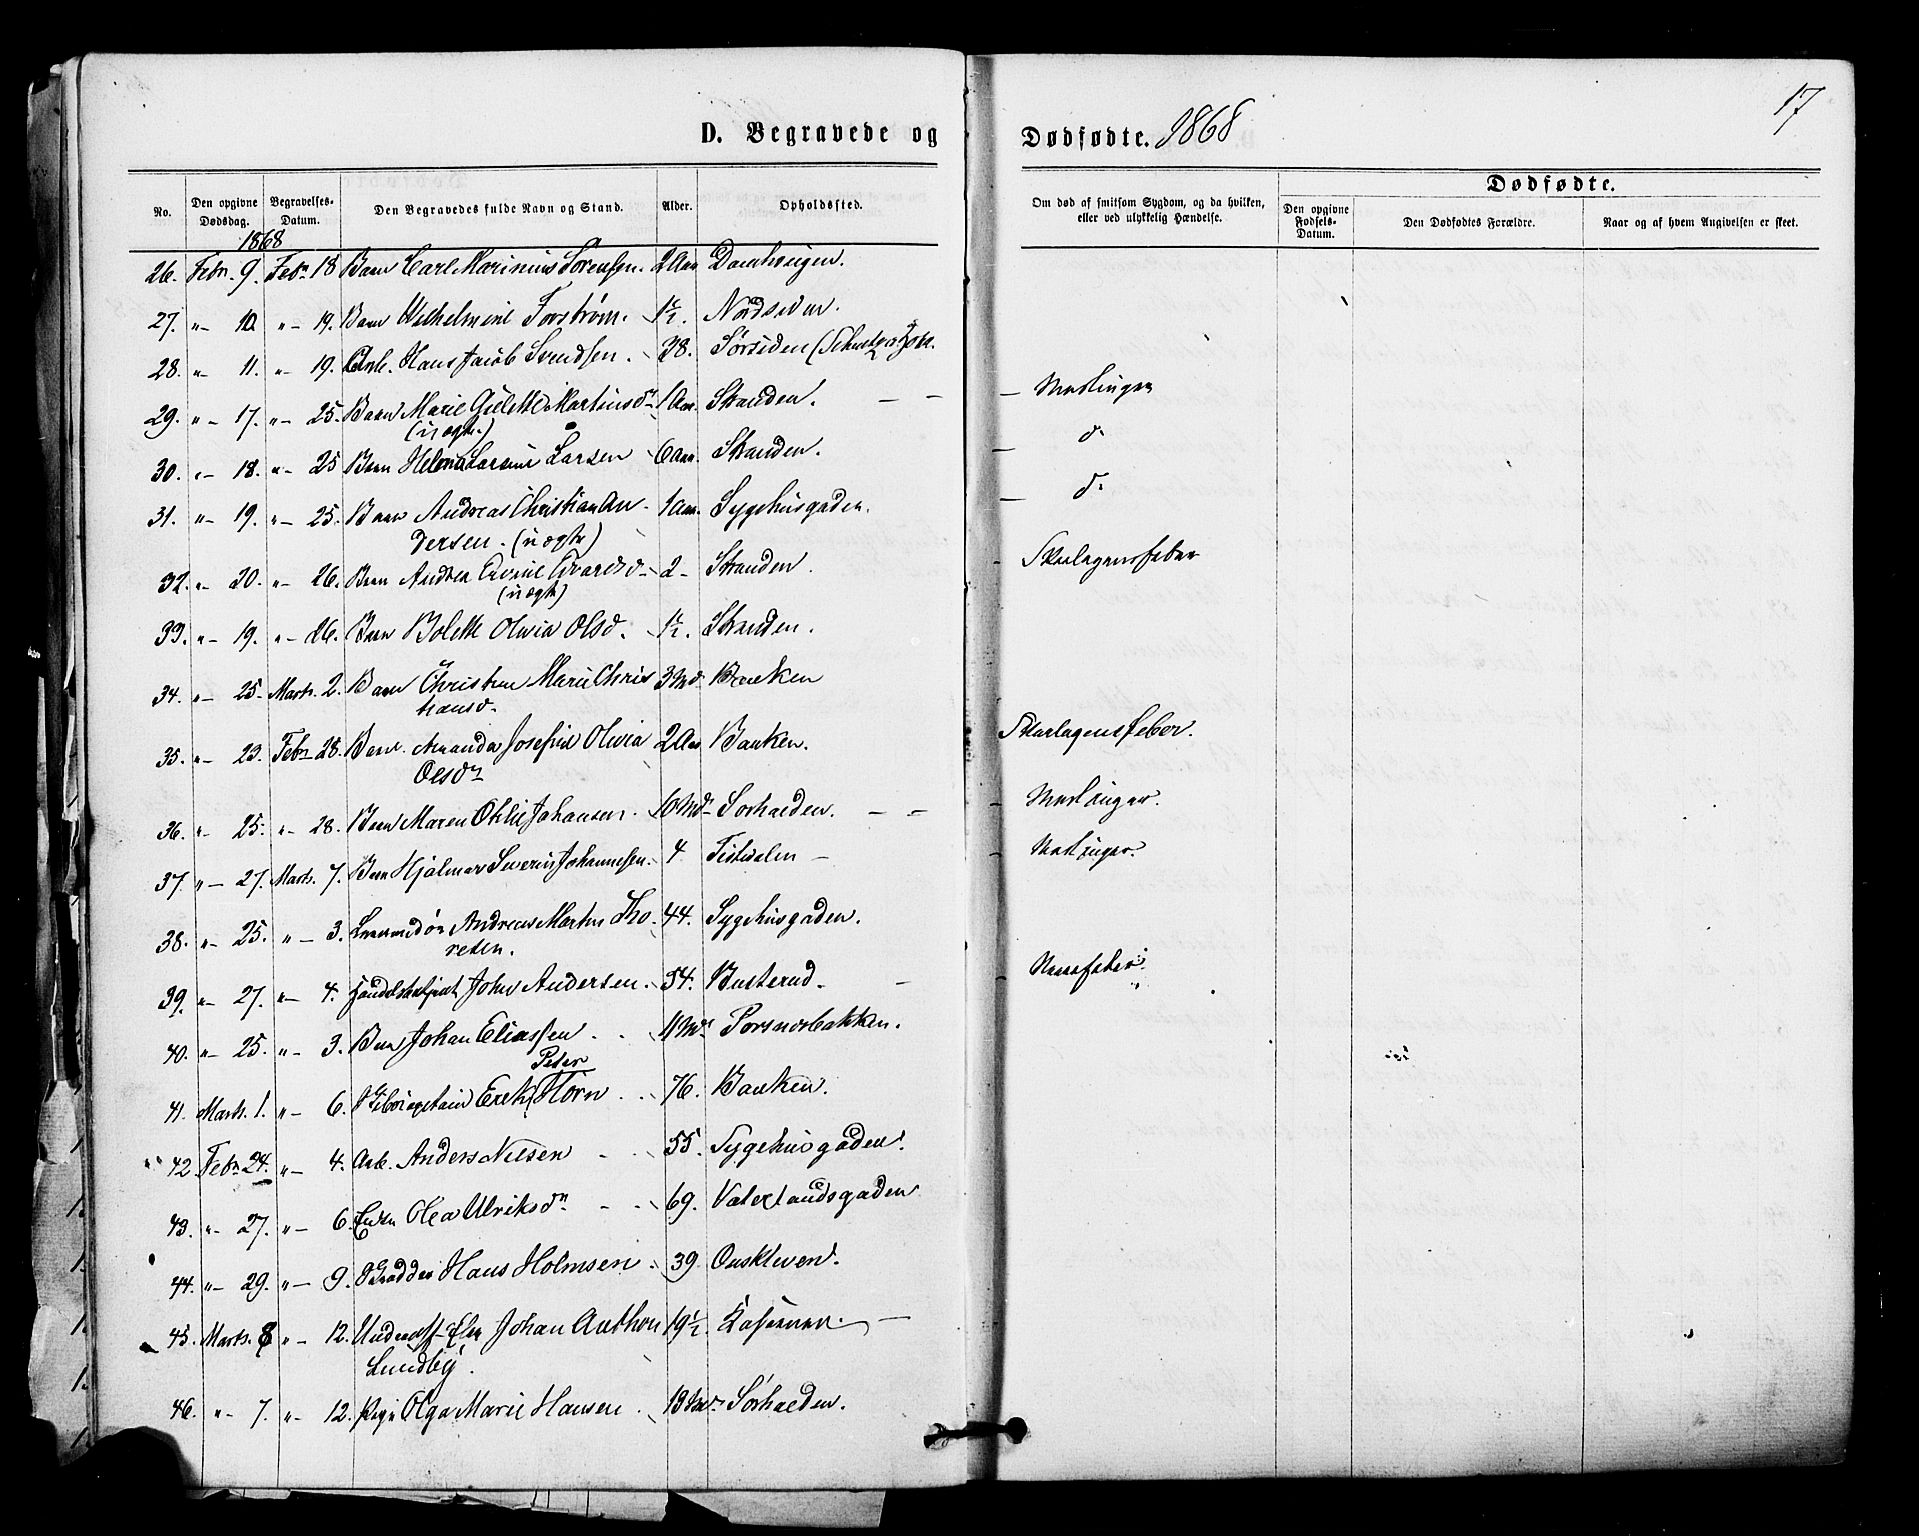 17
D. Begravede og Dødfødte. 1868
No. Den opgivne Dødsdag. Begravelses-Datum. Den Begravedes fulde Navn og Stand. Alder. Opholdssted. Om død af smitsom Sygdom, og da hvilken, eller ved ulykkelig Hændelse. Dødfødte.
Den opgivne Fødsels-Datum. Den Dødfødtes Forældre. Naar og af hvem Angivelsen er skeet.
1868
26. Febr. 9. Febr. 18 Barn Carl Marinius Sørensen. 2 Aar
27. "- 10. "- 19. Barn Wilhelmine Forstrøm. 1½. Nordsiden.
28. "- 11. "- 19. Arb. Hans Jacob Svendsen. 38. Sørsiden
29. "- 17. "- 25. Barn Marie Gulette Martinsdr 1 Aar. Stranden. - - - Mæslinger
(uægte.)
30. "- 18. "- 25 Barn Helena Larsine Larsen 6 Aar. Stranden. - do
31. "- 19. "- 25. Barn Andreas Christian An- 1 Aar. Sygehusgaden. - do
dersen. (uægte)
32. "- 20. "- 26. Barn Andrea Evine 2- Stranden. - Skarlagensfeber
(uægte)
33. "- 19. "- 26. Barn Bolette Olivia Olsd. 1½. Stranden.
34. "- 25. Marts. 2. Barn Christine Marie Chris 3 Md. Banken
tiansd.
35. "- 23. Febr 28. Barn. Amanda Josefine Olivia 2 Aar Banken. Skarlagensfeber.
Olsdr
36. "- 25. "- 28. Barn Maren Othilie Johansen. 10 Mdr Sørhalden. - - - Mæslinger.
37. "- 27. Marts. 7. Barn Hjalmar Severin Johannesen. 4 Tistedalen - Mæslinger.
38. "- 25. "- 3. Andreas Martin Tho- 44. Sygehusgaden.
resen.
39. "- 27. "- 4. John Andersen. 54. Busterud. - Nervefeber.
40. "- 25. "- 3. Barn Johan Eliassen . . 11 Mdr
Peter
41. Marts. 1. "- 6. Erek Horn . . 76. Banken.
42. Febr. 24. "- 4. Arb. Anders Nilsen - 55. Sygehusgaden.
43. "- 27. "- 6. Enke Olea Ulriksdr - - 69. Vaterlandsgaden
44. "- 29. "- 9. Hans Holmsen . 39. Ouskleven.
45. Marts. 8 "- 12. Underoff-Elev Johan Anthon 19½. Kasernen. -
Lundby.
46. "- 7. "- 12. Pige Olga Marie Hansen. Sørhalden.